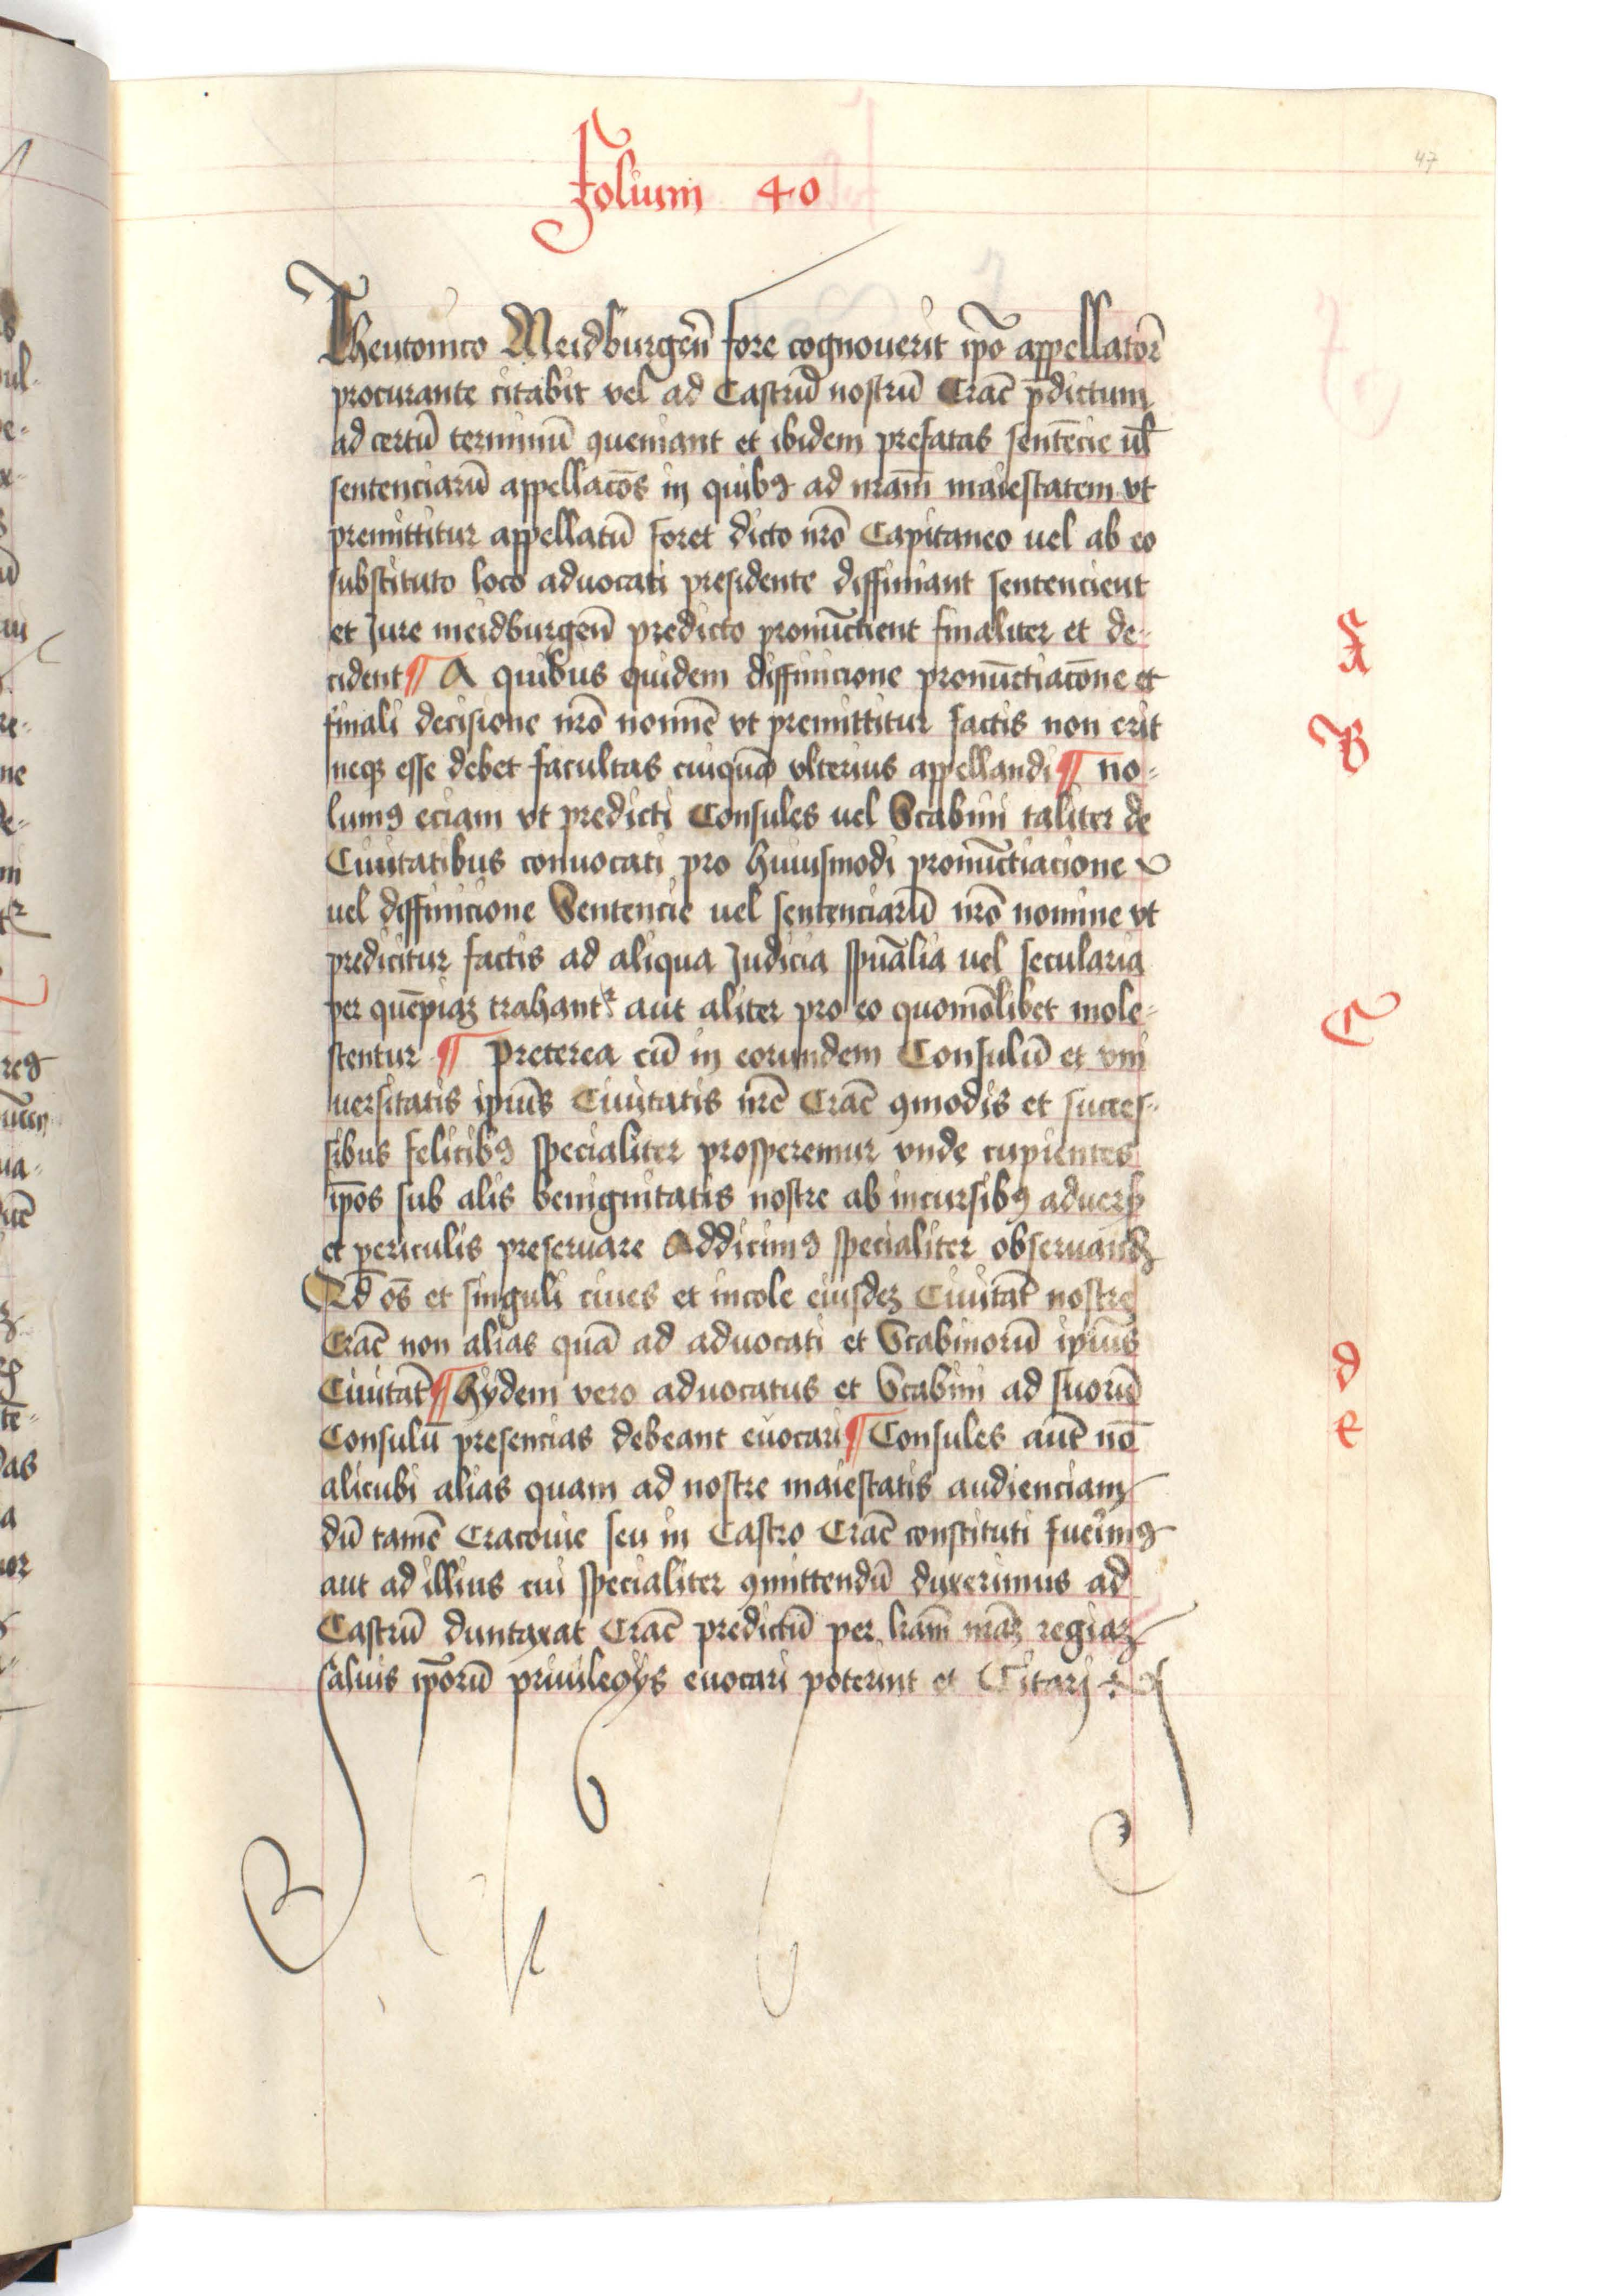 47
Folium 40
Theutonico Meidburgen̄ fore cognouerit ip̄o appellator̄
procurante citabit vel ad Castrū nostrū Crac̄ p̄dictum
ad certū terminū ꝯueniant et ibidem prefatas sentēcie ul̄
sentenciarū appellacōs in quibꝰ ad nrām maiestatem vt
premittitur appellatū foret dicto nrō Capitaneo uel ab eo
substituto loco aduocati presidente diffiniant sentencient
et Jure meidburgen̄ predicto pronūctient finaliter et de-
cident ¶ A quibus quidem diffinicione pronūctiacōne et
finali decisione nrō nomīe vt premittitur factis non erit
neqꝫ esse debet facultas cuiquā vlterius appellandi ¶ no-
lumꝰ eciam vt predicti Consules uel Scabini taliter de
Ciuitatibus conuocati pro huiusmodi pronūctiacione
uel diffinicione Sentencie uel sentenciarū nrō nomine vt
predicitur factis ad aliqua Judicia spūalia uel secularia
per quēpiaꝫ trahantᷣ aut aliter pro eo quomōlibet mole-
stentur ¶ Preterea cū in eorundem Consulū et vni
uersitatis ipiūs Ciuitatis nrē Crac̄ ꝯmodis et succes-
sibus felicibꝰ specialiter prosperemur vnde cupientes
ip̄os sub alis benignitatis nostre ab incursibꝰ aduers̄
et periculis preseruare Addicimꝰ specialiter obseruandꝫ
Qd̄ os̄ et singuli ciues et incole eiusdeꝫ Ciuitat̄ nostre
Crac̄ non alias quā ad aduocati et Scabinorū ipiūs
Ciuitat̄ ¶ Hydem vero aduocatus et Scabini ad suorū
Consulū presencias debeant euocari ¶ Consules aut̄ nō
alicubi alias quam ad nostre maiestatis audienciam
dū tamē Cracouie seu in Castro Crac̄ constituti fuerīmꝰ
aut ad illius cui specialiter ꝯmittendū duxerimus ad
Castrū duntaxat Crac̄ predictū per lrām nrāꝫ regiaꝫ
saluis ip̄orū priuilegijs euocari poterint et Citarj
A
B
C
d
e